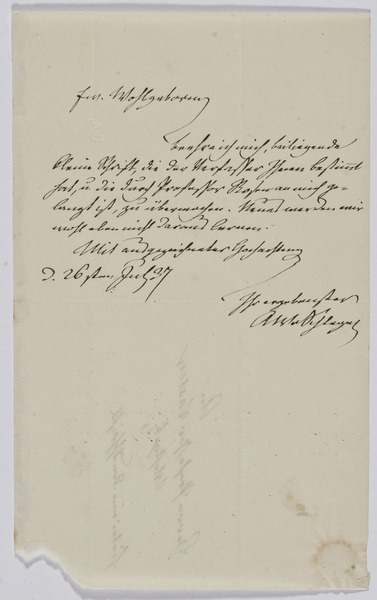 Ew. Wohlgeboren
beehre ich mich, beiliegende
kleine Schrift, die der Verfasser Ihnen bestimt
hat, u die durch Professor Rosen an mich ge-
langt ist, zu übermachen. Neues werden wir
wohl eben nicht daraus lernen.
Mit ausgezeichneter Hochachtung
d. 26sten Jul 37
Ihr ergebenster
AWvSchlegel